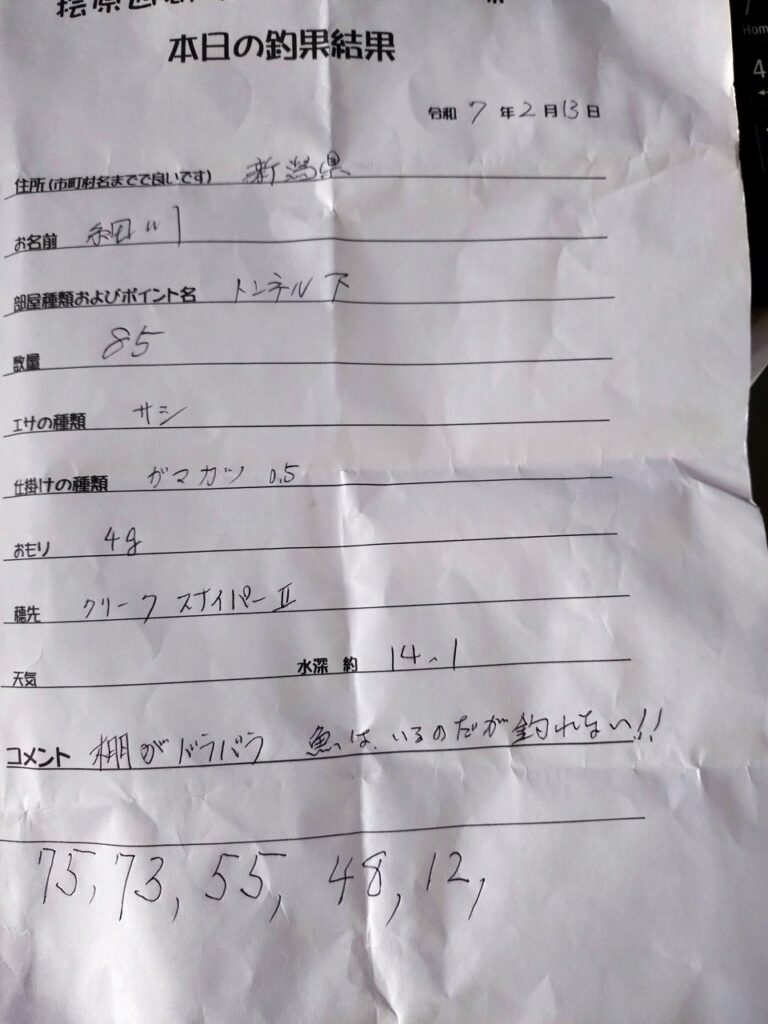 本日の釣果結果
令和 7 年 2 月 13 日
住所(市町村名までで良いです) 新潟県
お名前 細川
部屋種類およびポイント名 トンネル下
数量 85
エサの種類 サシ
仕掛けの種類 ガマカツ 0.5
おもり 4g
穂先 クリーク スナイパーⅡ
天気 水深 約 14.1
コメント 棚がバラバラ 魚はいるのだが釣れない!!
75, 73, 55, 48, 12,